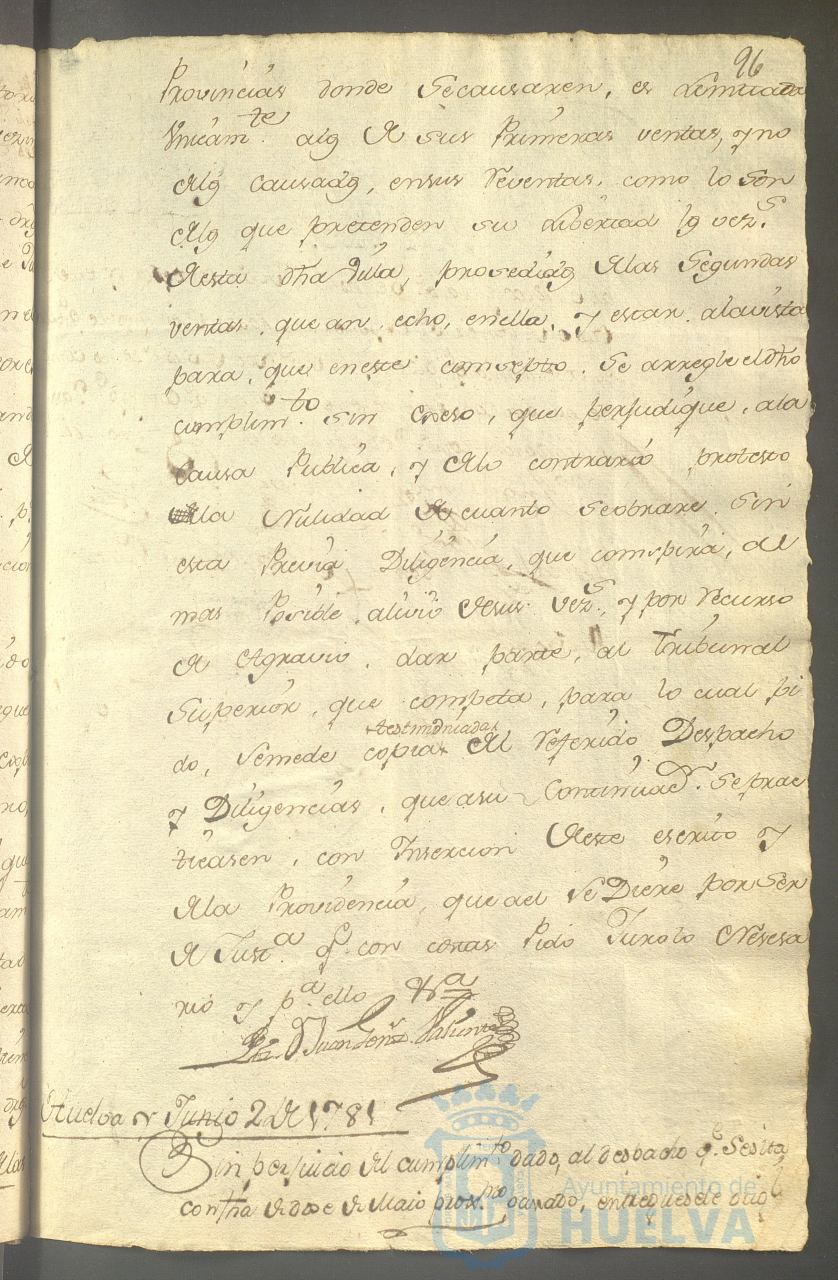 96
Provincias donde Secausaren, es Lemitada
Unicam.te alg de sus Primeras ventas, y no
delg causadg, ensus reventas, como lo son
delg que pretenden su Libertad lg vez.s
desta dha Villa, prosedidg delas Segundas
ventas, que an echo, enella, y estar alavista
para, que eneste comsepto, Se arregle el dho
cumplim.to sin exeso, que perjudique, ala
causa Publica, y delo contrario protesto
dela Nulidad de cuanto seobrare Sin
esta Previa Diligencia, que comspira, al
mas Posible alivio desus vez.s, y por recurso
de Agravio, dar parte, al Tribunal
Superior, que competa, para lo cual pi
testimoniadas
do, semede copias del referido Despacho
y Diligencias, que asu Continuac.n Seprac
ticasen, con Insercion deste escrito y
dela Providencia, que ael se Diere por Ser
de Just.a q.e con costas Pido Juro lo Nesesa
rio y p.a ello
Huelva y Junio 2 de 1781
Sin perjuicio del cumplim.to dado, al despacho q.e Sesita,
con fha de doze de Maio prox.mo pasado, entreguesele
Ayuntamiento de
HUELVA